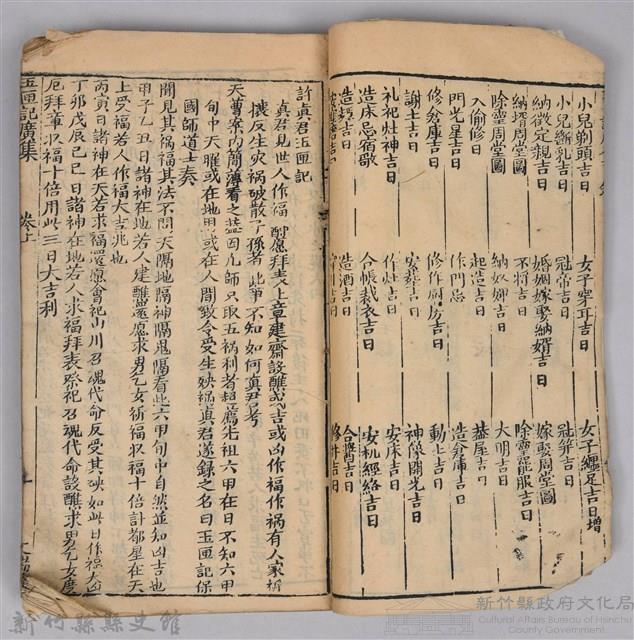 小兒剃頭吉日　女子穿耳吉日　女子纏足吉日增
小兒斷乳吉日　冠帶吉日　冠笄吉日
納徵定親吉日　婚姻嫁娶納婿吉日　嫁娶周堂圖
納壻周堂圖　不將吉日　除靈脫服吉日
除靈周堂圖　納奴婢吉日　大明吉日
入倫修日　起造吉日　蓋屋吉日
門光星吉日　作門忌　造倉庫吉日
修倉庫吉日　修作廚房吉日　動土吉日
謝土吉日　安葬吉日　神像開光吉日
礼祀灶神吉日　作灶吉日　安床吉日
造床忌宿歇　合帳裁衣吉日　安机經絡吉日
造麴吉日　造酒吉日　合醬吉日
修井吉日
許真君玉匣記
真君見世人作福酬愿拜表上章建齋設醮或吉或凶作福作祸有人家祈
攘反生灾祸破散子孫者此事不知如何真君考
天曹案內簡薄看之
旬中天曜或在地甲或在人間致令受生殃祸真君遂録之名曰玉匣記保
國師道士奏
聞見其祸福其法不問天隔地隔神隔鬼隔看此六甲旬中自然並知凶吉也
甲子乙丑日諸神在地若人建醮還愿求男乙女祈福収福十倍計都星在天
上受福若人作福大吉兆也
丙寅日諸神在天若求福還愿會祀山川召魂代命反受其殃如此日作福大凶
丁卯戊辰己巳日諸神在地若人求福拜表祭祀召魂代命設醮求男乙女度
厄拜章収福十倍用此三日大吉利
玉匣記廣集　卷上
新竹縣縣史館
新竹縣政府文化局
Cultural Affairs Bureau of Hsinchu County Government